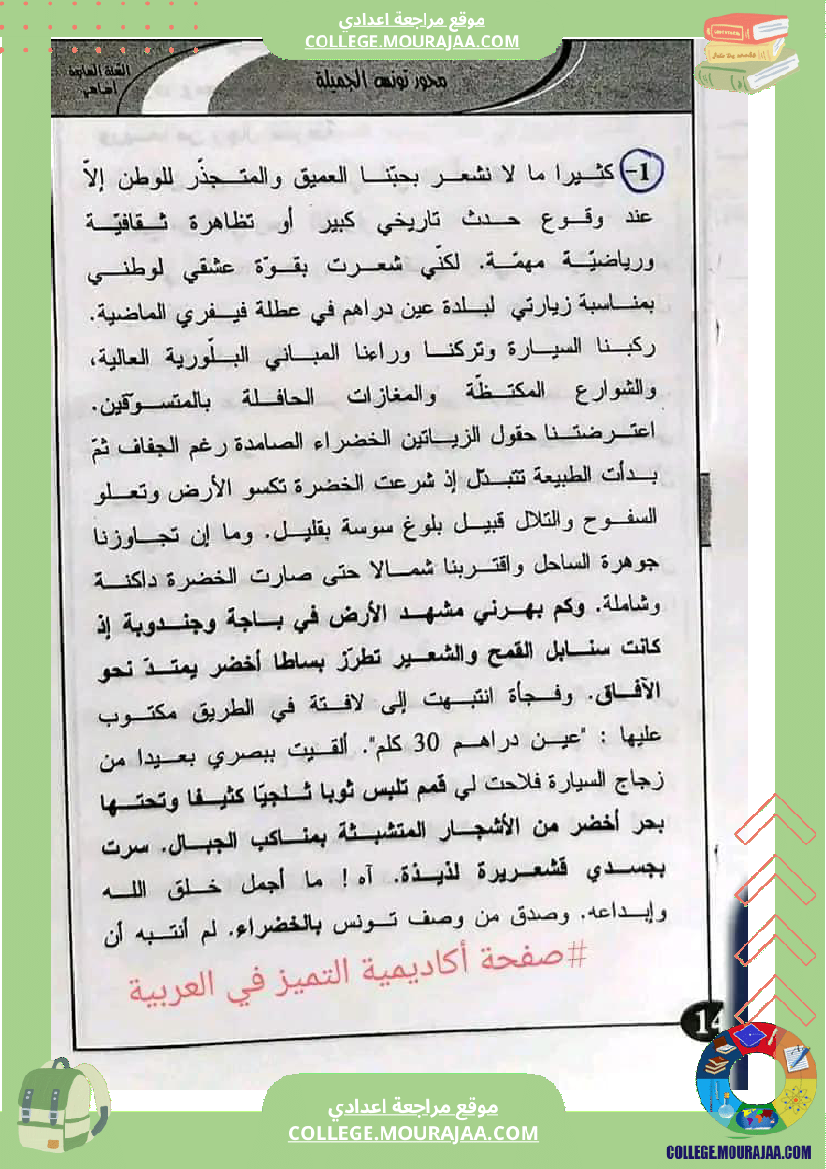 موقع مراجعة اعدادي
COLLEGE.MOURAJAA.COM
محور تونس الجميلة
السنة السابعة
أساسي
1- كثيرا ما لا نشعر بحبّنا العميق والمتجذّر للوطن إلاّ
عند وقوع حدث تاريخي كبير أو تظاهرة ثقافيّة
ورياضيّة مهمّة. لكنّي شعرت بقوّة عشقي لوطني
بمناسبة زيارتي لبلدة عين دراهم في عطلة فيفري الماضية.
ركبنا السيارة وتركنا وراءنا المباني البلّورية العالية،
والشوارع المكتظّة والمغازات الحافلة بالمتسوّقين.
اعترضتنا حقول الزياتين الخضراء الصامدة رغم الجفاف ثمّ
بدأت الطبيعة تتبدّل إذ شرعت الخضرة تكسو الأرض وتعلو
السفوح والتلال قبيل بلوغ سوسة بقليل. وما إن تجاوزنا
جوهرة الساحل واقتربنا شمالا حتى صارت الخضرة داكنة
وشاملة. وكم بهرني مشهد الأرض في باجة وجندوبة إذ
كانت سنابل القمح والشعير تطرّز بساطا أخضر يمتدّ نحو
الآفاق. وفجأة انتبهت إلى لافتة في الطريق مكتوب
عليها : "عين دراهم 30 كلم". ألقيت ببصري بعيدا من
زجاج السيارة فلاحت لي قمم تلبس ثوبا ثلجيّا كثيفا وتحتها
بحر أخضر من الأشجار المتشبثة بمناكب الجبال. سرت
بجسدي قشعريرة لذيذة. آه ! ما أجمل خلق الله
وإبداعه. وصدق من وصف تونس بالخضراء. لم أنتبه أن
#صفحة أكاديمية التميز في العربية
14
موقع مراجعة اعدادي
COLLEGE.MOURAJAA.COM
COLLEGE.MOURAJAA.COM